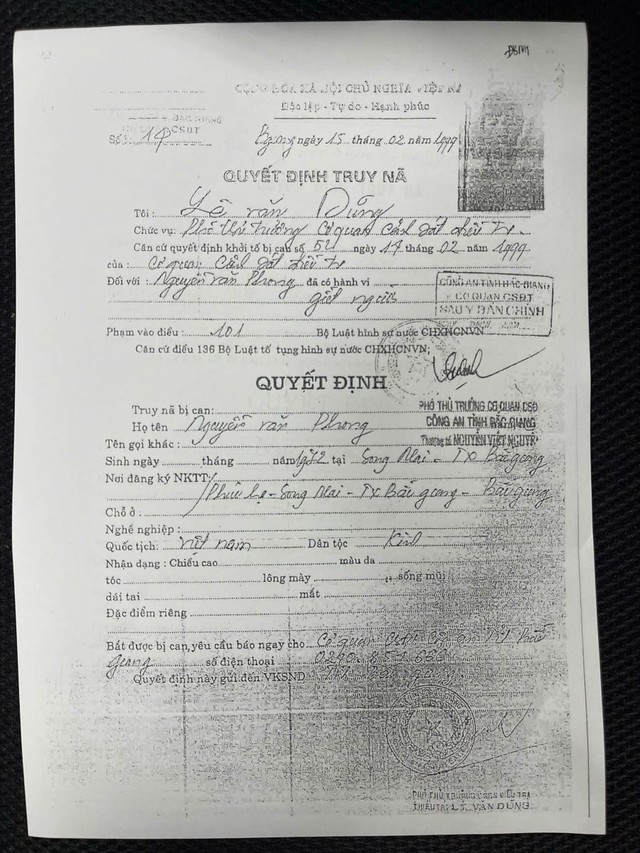 CỘNG HÒA XÃ HỘI CHỦ NGHĨA VIỆT NA
Độc lập - Tự do - Hạnh phúc
BẮC GIANG
CSĐT
Số 14
ngày 15 tháng 02 năm 1999
QUYẾT ĐỊNH TRUY NÃ
Tôi: Lê văn Dũng
Chức vụ: Phó thủ trưởng Cơ quan Cảnh sát điều tra
Căn cứ quyết định khởi tố bị can số 54 ngày 14 tháng 02 năm 1999
của: Cơ quan Cảnh sát điều tr
Đối với: Nguyễn văn Phong đã có hành vi
giết người
CÔNG AN TỈNH BẮC GIANG
CƠ QUAN CSĐT
SAO Y BẢN CHÍNH
Phạm vào điều: 101 Bộ Luật hình sự nước CHXHCNVN
Căn cứ điều 136 Bộ Luật tố tụng hình sự nước CHXHCNVN;
QUYẾT ĐỊNH
Truy nã bị can:
PHÓ THỦ TRƯỞNG CƠ QUAN CSĐ
Họ tên Nguyễn văn Phong
CÔNG AN TỈNH BẮC GIANG
Tên gọi khác:
Thượng tá NGUYỄN VIẾT NGUYÊ
Sinh ngày tháng năm 1972 tại Song Mai - TX Bắc giang
Nơi đăng ký NKTT
Phúc hạ - Song Mai - TX Bắc giang - Bắc giang
Chỗ ở:
Nghề nghiệp:
Quốc tịch: việt nam Dân tộc Kinh
Nhận dạng: Chiều cao màu da
tóc lông mày sống mũi
dái tai mắt
Đặc điểm riêng
Bắt được bị can, yêu cầu báo ngay cho Cơ quan CSĐT Công an tỉnh Bắc
Giang số điện thoại
Quyết định này gửi đến VKSND
THIẾU TÁ: LÊ VĂN DŨNG